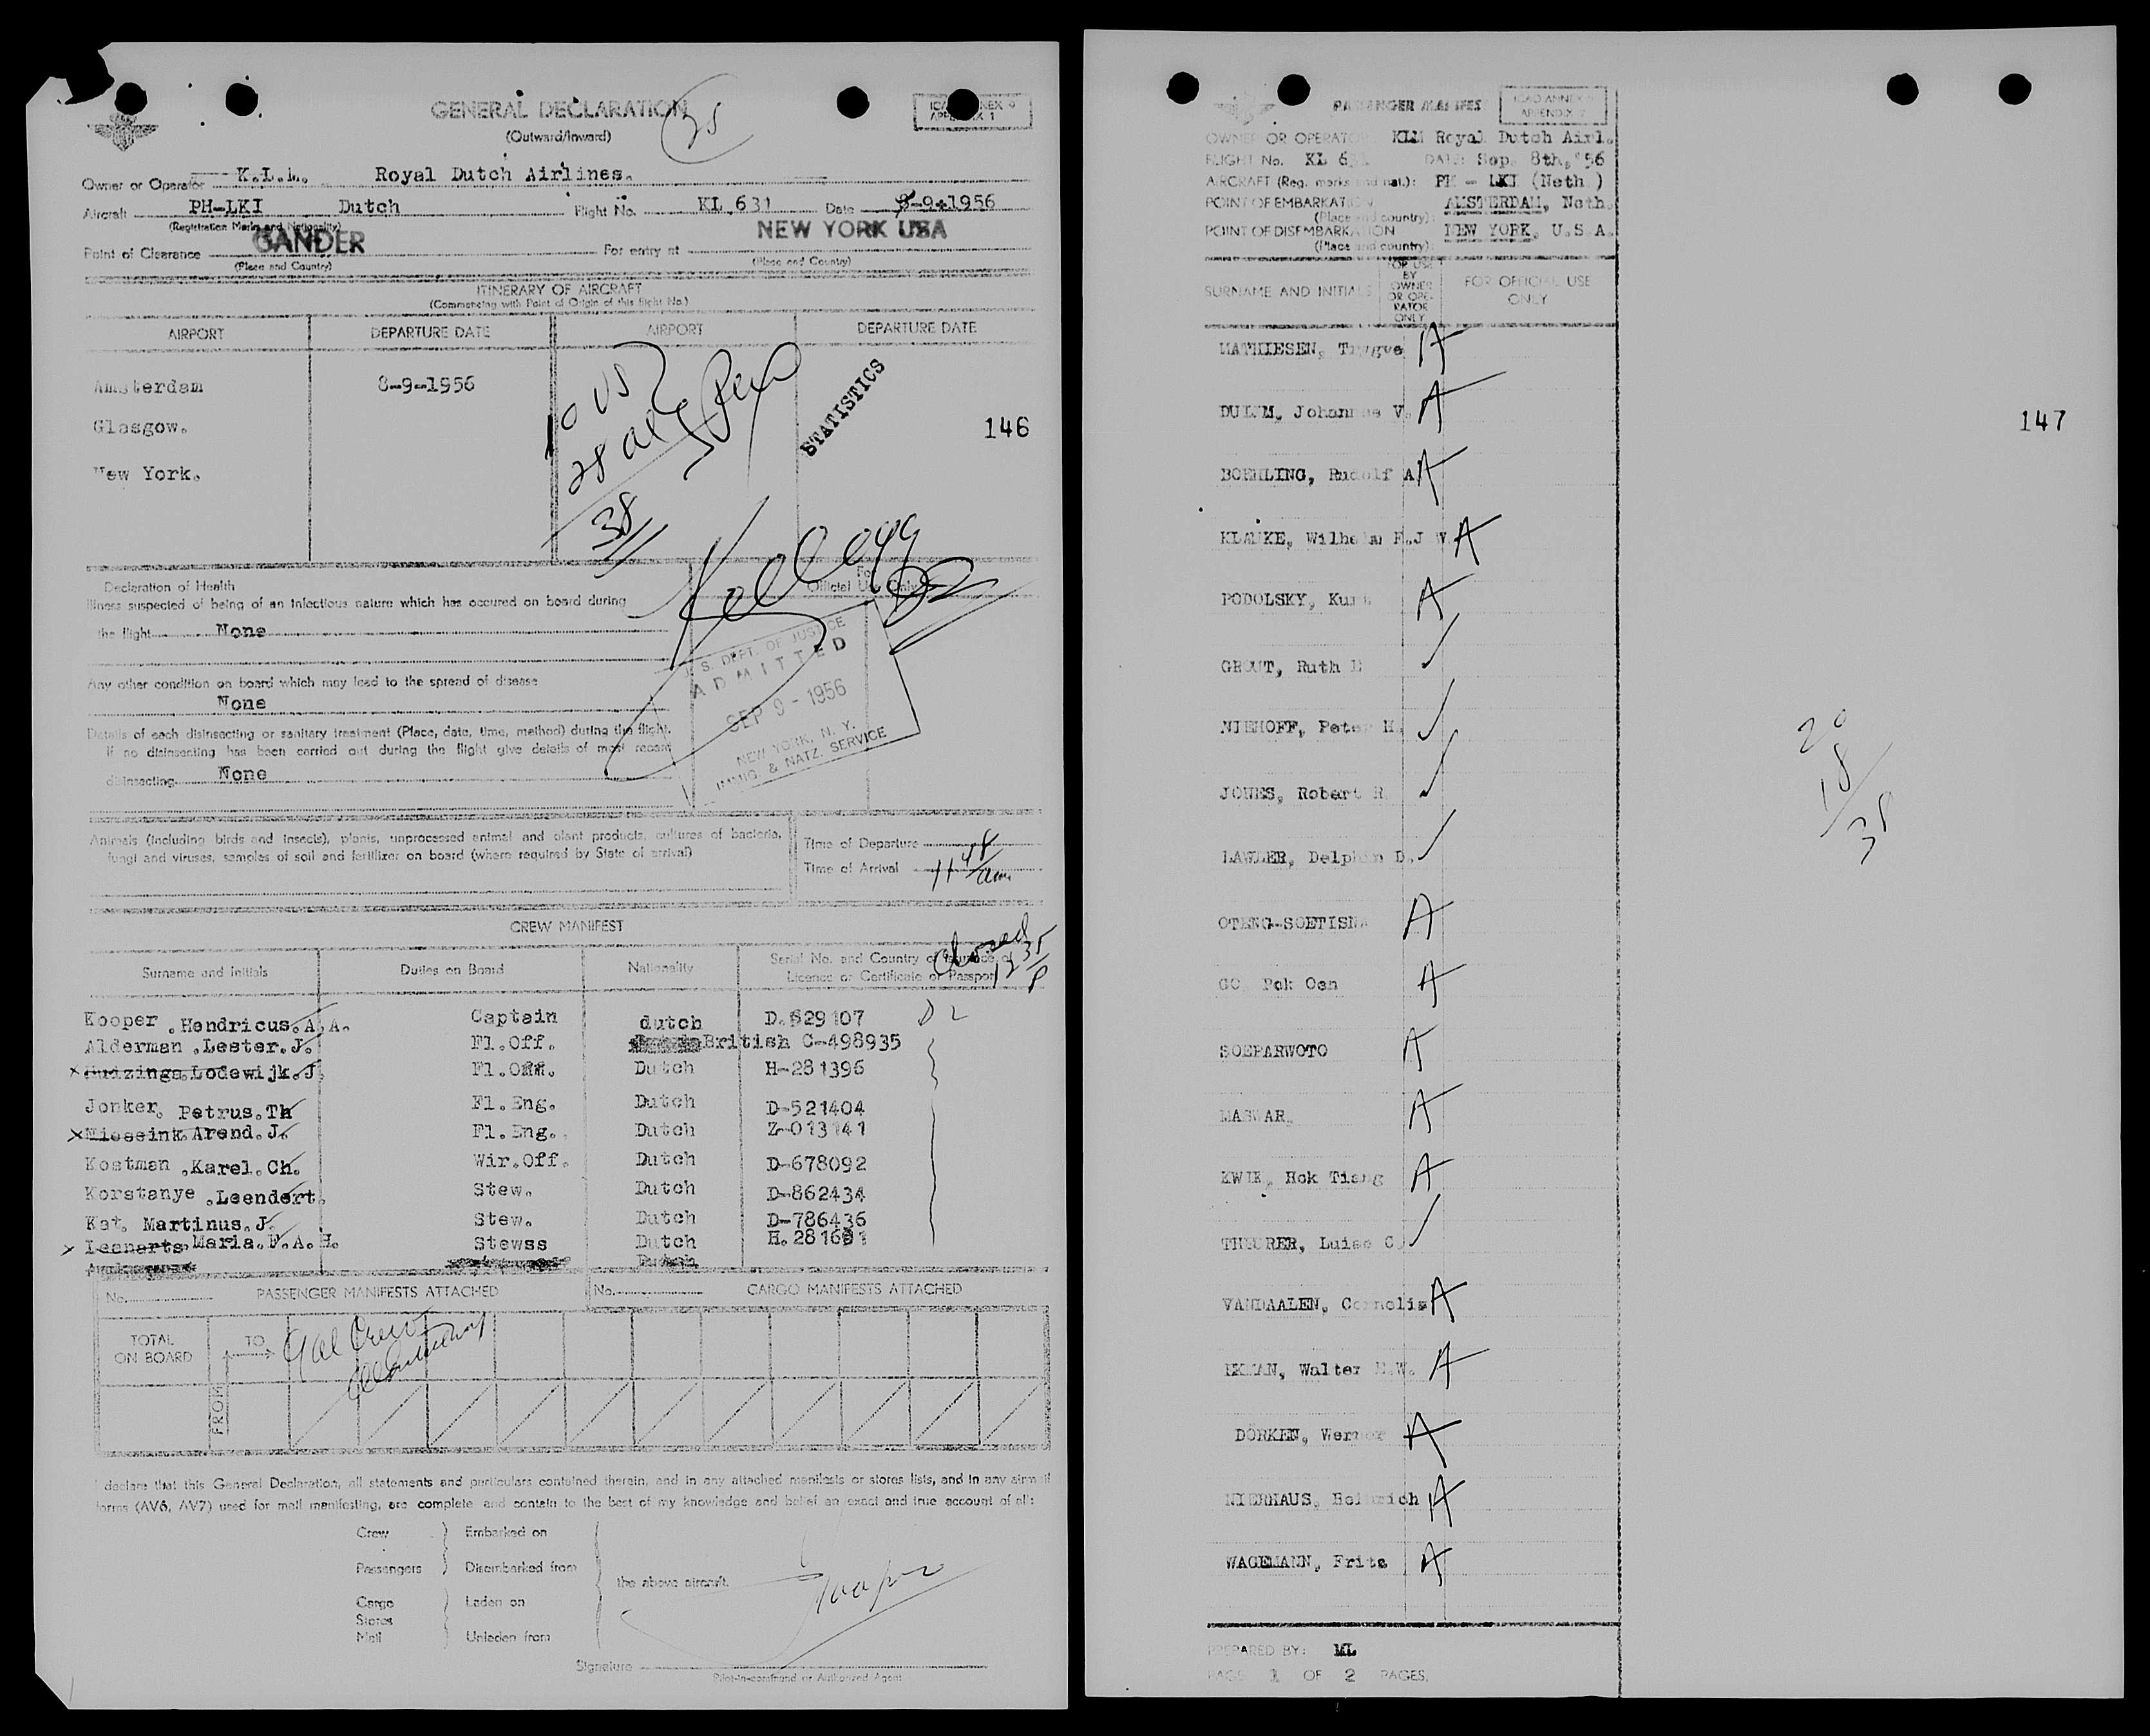 GENERAL DECLARATION
35
(Outward/Inward)
APPENDIX 1
Owner or Operator K.L.M. Royal Dutch Airlines.
Aircraft PH-LKI Dutch Flight No. KL.631 Date 8-9-1956
(Registration Marks and Nationality)
GANDER NEW YORK USA
Point of Clearance For entry at
(Place and Country) (Place and Country)
ITINERARY OF AIRCRAFT
(Commencing with Point of Origin of this flight No.)
AIRPORT DEPARTURE DATE AIRPORT DEPARTURE DATE
Amsterdam 8-9-1956
Glasgow.
New York.
10 US
28 al
38
STATISTICS
146
Kellogg
D2
Declaration of Health
For Official Use Only
Illness suspected of being of an infectious nature which has occured on board during
the flight None
Any other condition on board which may lead to the spread of disease
None
Details of each disinsecting or sanitary treatment (Place, date, time, method) during the flight.
If no disinsecting has been carried out during the flight give details of most recent
disinsecting None
U. S. DEPT. OF JUSTICE
ADMITTED
SEP 9 - 1956
NEW YORK, N. Y.
IMMIG. & NATZ. SERVICE
Animals (including birds and insects), plants, unprocessed animal and plant products, cultures of bacteria,
fungi and viruses, samples of soil and fertilizer on board (where required by State of arrival)
Time of Departure
Time of Arrival 11 48 am
CREW MANIFEST
closed 12 35 P
Surname and Initials Duties on Board Nationality Serial No. and Country of Issuance of
Licence or Certificate or Passport
Kooper .Hendricus.A.A. Captain dutch D.S29107 D2
Alderman .Lester.J. Fl.Off. British C-498935
x Huizinga.Lodewijk.J. Fl.Off. Dutch H-281396
Jonker. Petrus.Th Fl.Eng. Dutch D-521404
x Miessink.Arend.J. Fl.Eng. Dutch Z-013141
Kostman .Karel.Ch. Wir.Off. Dutch D-678092
Korstanye .Leendert. Stew. Dutch D-862434
Kat. Martinus.J. Stew. Dutch D-786436
x Leenarts.Maria.F.A.H. Stewss Dutch H.281691
Dutch
No. PASSENGER MANIFESTS ATTACHED No. CARGO MANIFESTS ATTACHED
TOTAL ON BOARD TO
FROM
I declare that this General Declaration, all statements and particulars contained therein, and in any attached manifests or stores lists, and in any airmail
forms (AV6, AV7) used for mail manifesting, are complete and contain to the best of my knowledge and belief an exact and true account of all:
Crew Embarked on
Passengers Disembarked from
the above aircraft.
Cargo Laden on
Stores
Mail Unladen from
Kooper
Signature
Pilot-in-command or Authorized Agent
PASSENGER MANIFEST
ICAO ANNEX 9
APPENDIX 2
OWNER OR OPERATOR KLM Royal Dutch Airl.
FLIGHT No. KL 631 DATE: Sep. 8th,'56
AIRCRAFT (Reg. marks and nat.): PH - LKI (Neth.)
POINT OF EMBARKATION AMSTERDAM, Neth.
(Place and country):
POINT OF DISEMBARKATION NEW YORK, U.S.A.
(Place and country):
SURNAME AND INITIALS FOR USE BY OWNER OR OPE-RATOR ONLY FOR OFFICIAL USE ONLY
MATHIESEN, Trygve A
DULUM, Johannes V. A
BOEHLING, Rudolf A. A
KLAUKE, Wilhelm F.J.W. A
PODOLSKY, Kurt A
GROUT, Ruth E
147
NIEHOFF, Peter H.
JONES, Robert R
LAWLER, Delphin D.
20
18
38
OTENG-SOETISNA A
GO Pok Oen A
SOEPARWOTO A
MASWAR. A
KWIE, Hok Tiang A
THEURER, Luise C.
VANDAALEN, Cornelis A
EKMAN, Walter E.W. A
DÖRKEN, Werner A
NIERHAUS, Heinrich A
WAGEMANN, Fritz A
PREPARED BY: ML
PAGE 1 OF 2 PAGES.